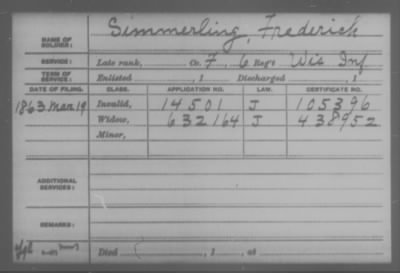 NAME OF SOLDIER: Simmerling, Frederick
SERVICE: Late rank, Co. F, 6 Reg't Wis Inf
TERM OF SERVICE: Enlisted , 1 Discharged , 1
DATE OF FILING. CLASS. APPLICATION NO. LAW. CERTIFICATE NO.
1863 Mar 19 Invalid, 14501 J 105396
Widow, 632164 J 438952
Minor,
ADDITIONAL SERVICES:
REMARKS:
Died , 1 , at